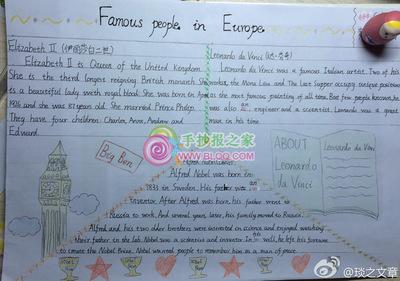 Famous people in Europe
Elizabeth II (伊丽莎白二世)
Elizabeth II is Queen of the United Kingdom.
She is the third longest reigning British monarch. She
is a beautiful lady with royal blood. She was born in April
1926 and she was 87 years old. She married Prince Philip.
They have four children: Charles, Anne, Andrew and
Edward.
Leonardo da Vinci
Leonardo da Vinci was a famous Italian artist. Two of his
works, the Mona Lisa and The Last Supper occupy unique positions
as the most famous painting of all time. But few people known, he
was also an engineer and a scientist. Leonardo was a great
man in his time.
手抄报之家
WWW.BLOQ.COM
Big Ben
Alfred Nobel
Alfred Nobel was born in
1833 in Sweden. His father was an
inventor. After Alfred was born, his father went to
Russia to work. And several years later, his family moved to Russia.
Alfred and his two older brothers were interested in science and enjoyed watching
their father in the lab. Nobel was a scientist and inventor. In his will, he left his fortune
to create the Nobel Prize. Nobel wanted people to remember him as a man of peace.
ABOUT
Leonardo
da Vinci
Leonardo da Vinci
Nobel
Nobel
Nobel
Nobel
@琰之文章